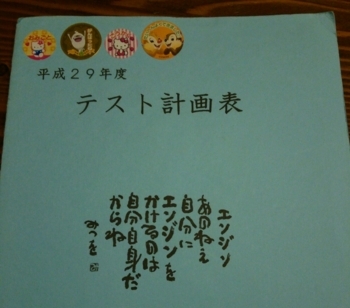 平成29年度
テスト計画表
エンジン
あのねえ
自分に
エンジンを
かけるのは
自分自身だ
からね
みつを